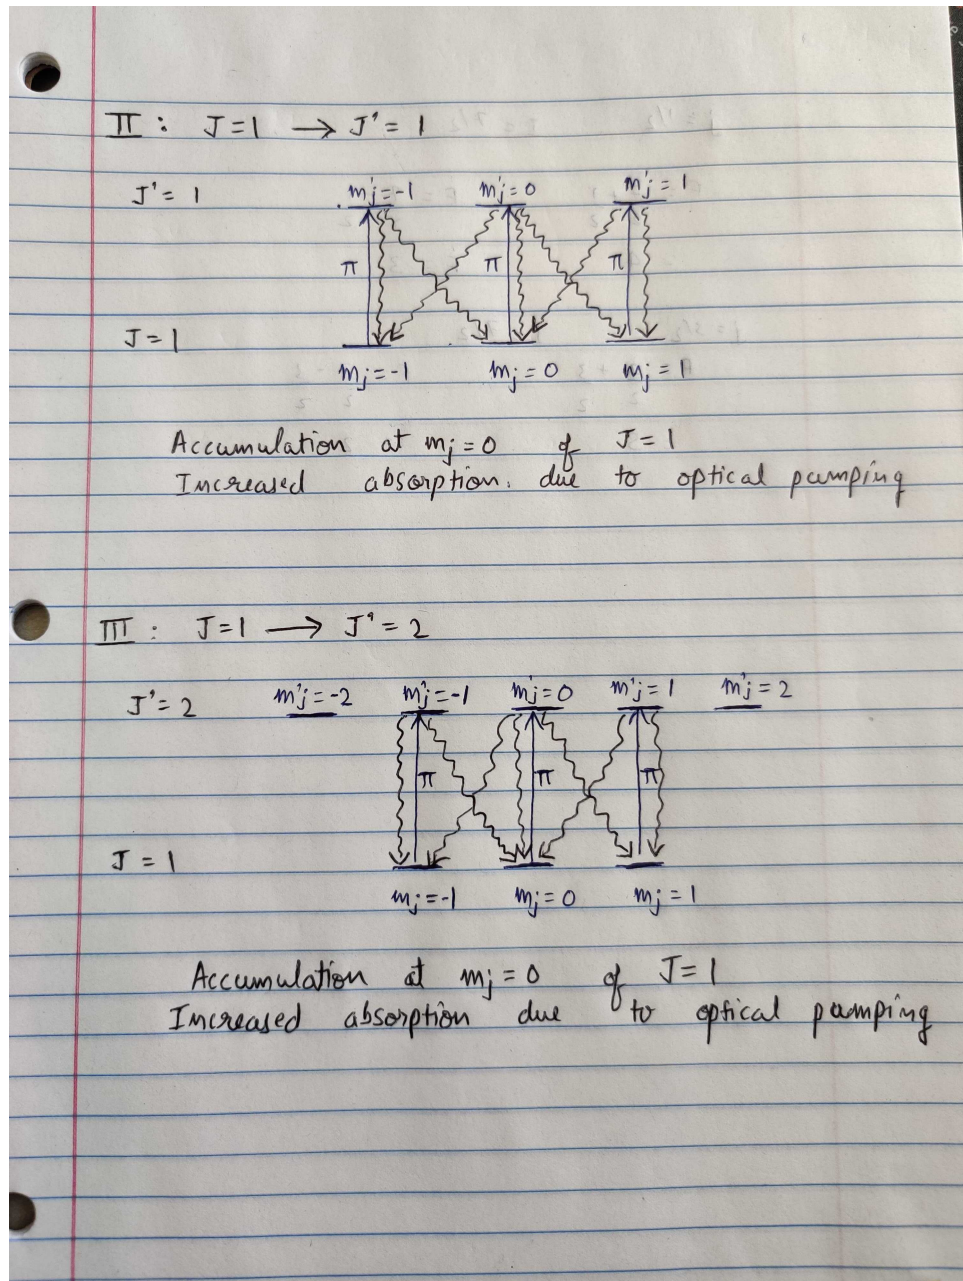 II : J=1 → J' = 1
J' = 1 m'j=-1 m'j=0 m'j=1
π π π
J=1
mj=-1 mj=0 mj=1
Accumulation at mj=0 of J=1
Increased absorption. due to optical pumping
III : J=1 → J' = 2
J'=2 m'j=-2 m'j=-1 m'j=0 m'j=1 m'j=2
π π π
J = 1
mj=-1 mj=0 mj=1
Accumulation at mj=0 of J=1
Increased absorption due to optical pumping